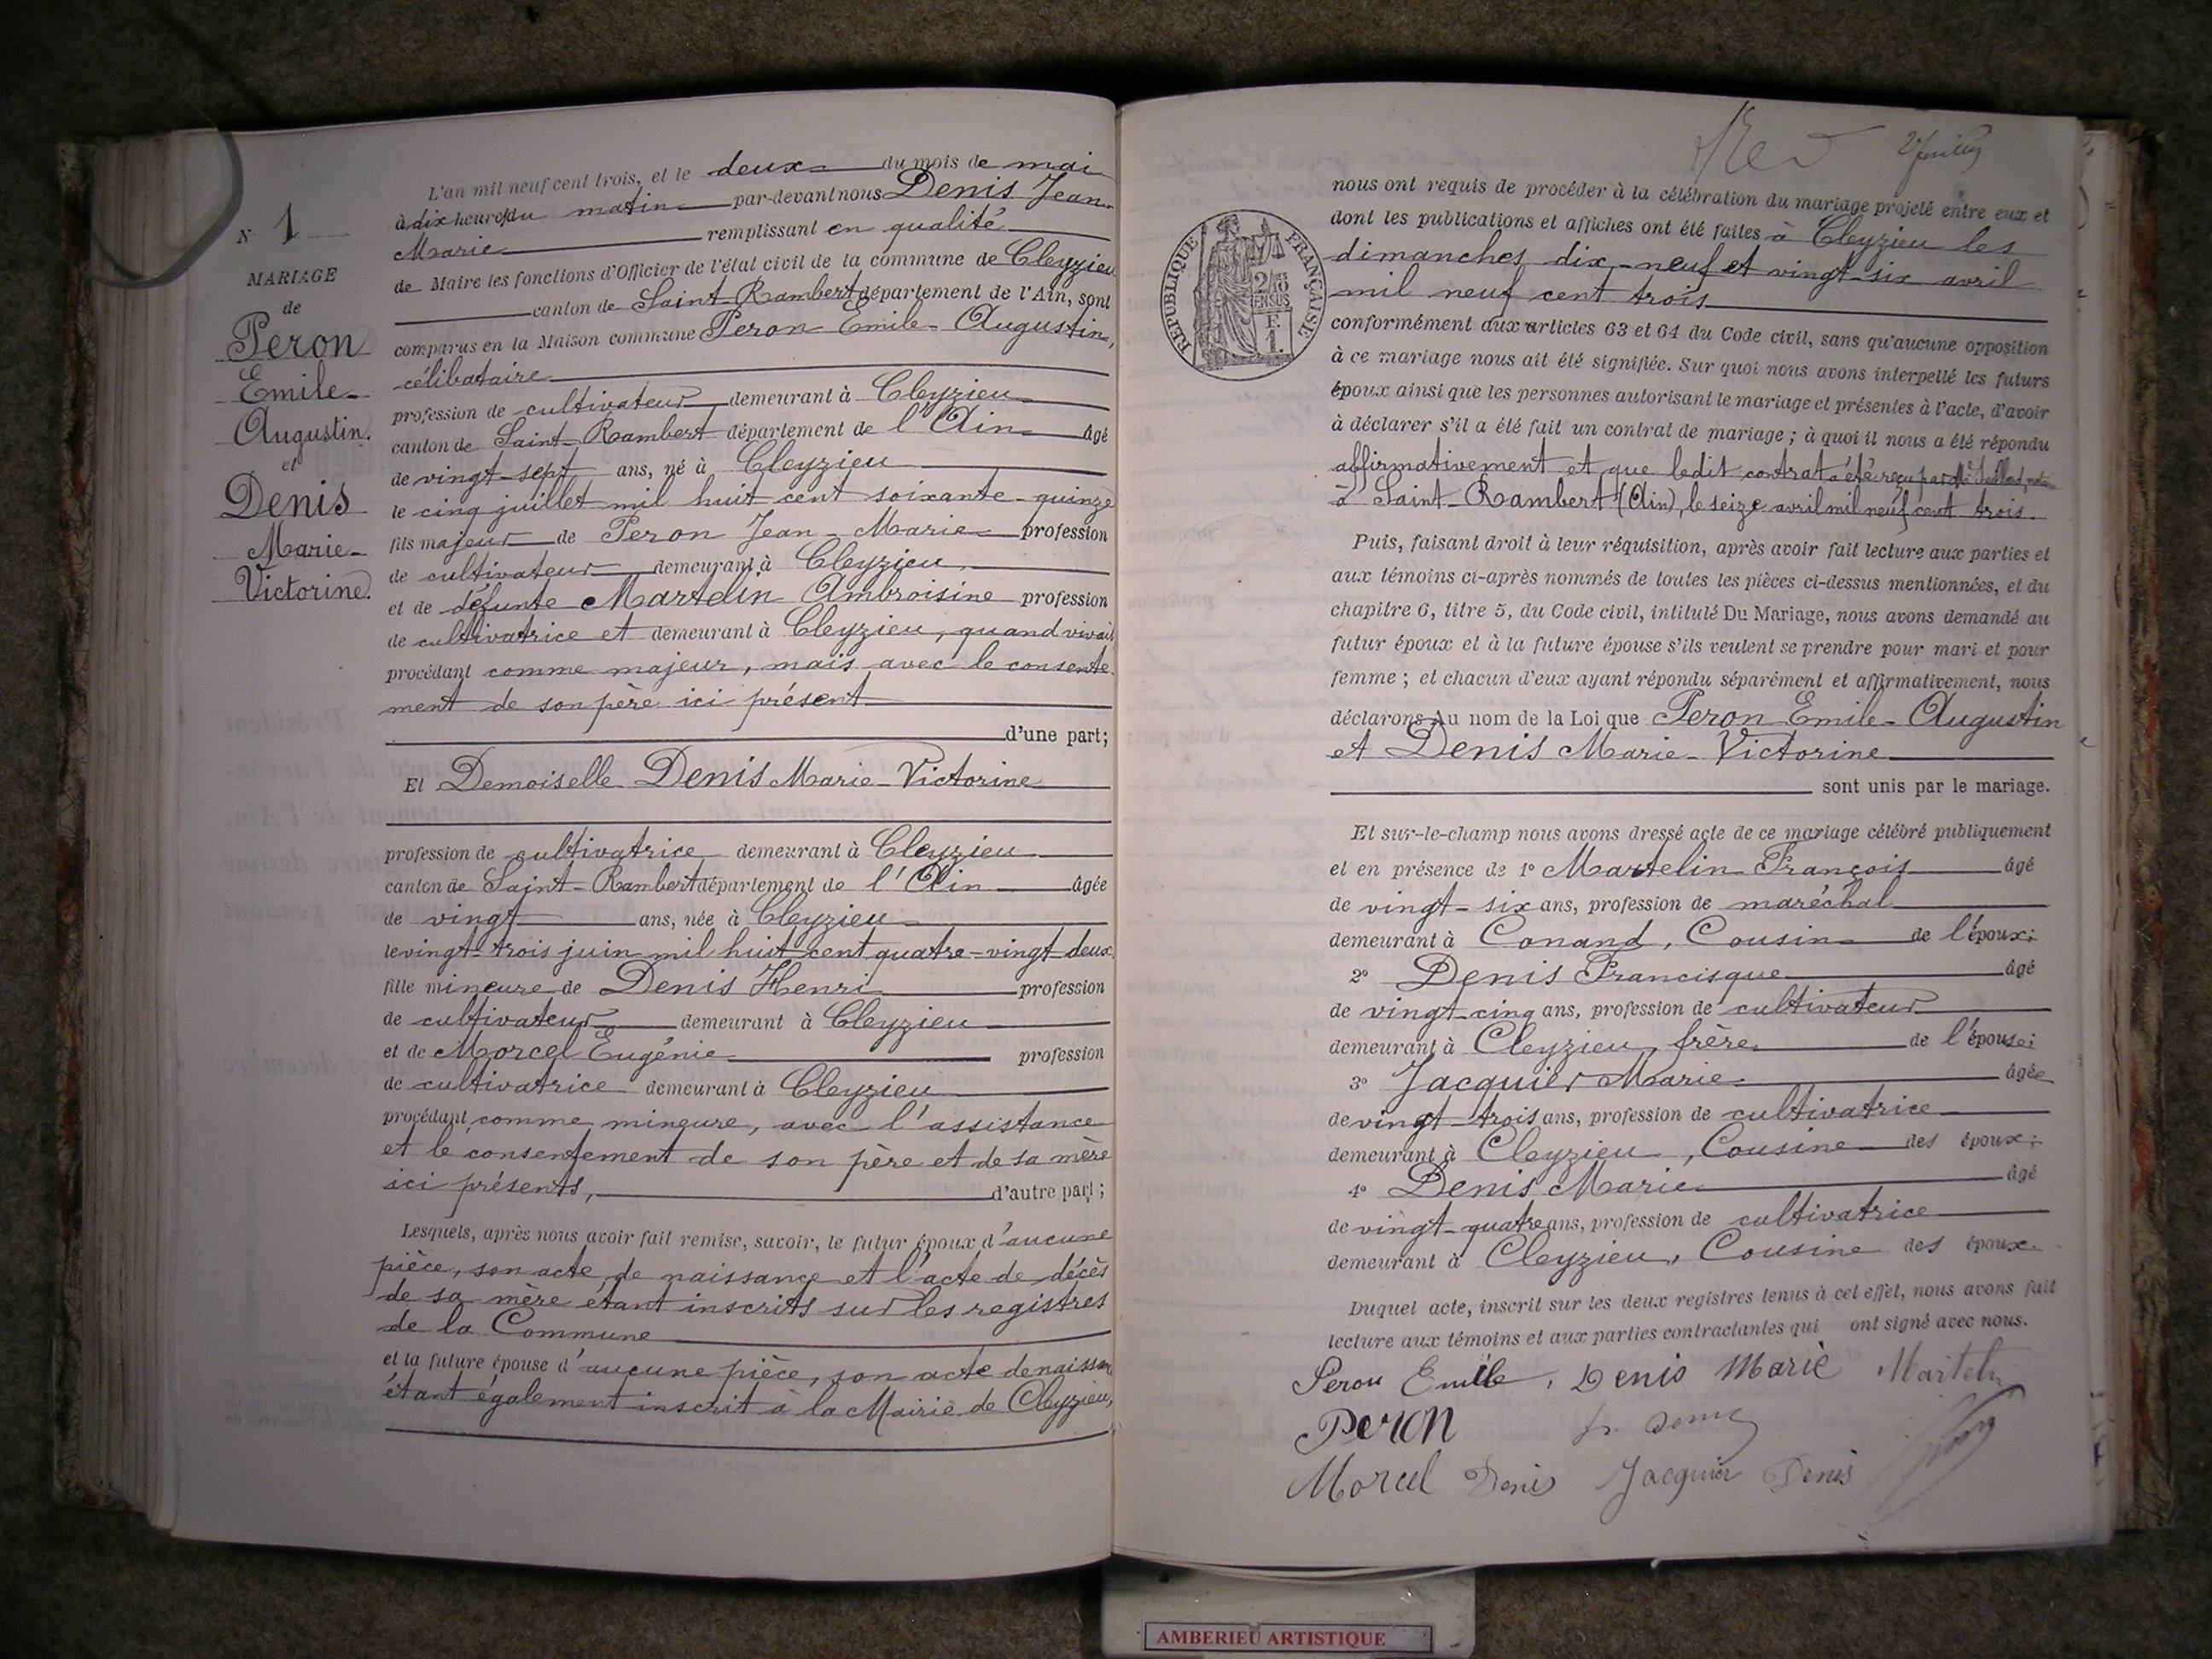 L'an mil neuf cent trois, et le deux du mois de mai
à dix heures du matin par-devant nous Denis Jean-
Marie remplissant en qualité
de Maire les fonctions d'Officier de l'état civil de la commune de Cleyzieu
canton de Saint-Rambert département de l'Ain, sont
comparus en la Maison commune Peron Emile-Augustin,
célibataire
profession de cultivateur demeurant à Cleyzieu
canton de Saint-Rambert département de l'Ain âgé
de vingt-sept ans, né à Cleyzieu
le cinq juillet mil huit cent soixante-quinze
fils majeur de Peron Jean-Marie profession
de cultivateur demeurant à Cleyzieu
et de défunte Martelin Ambroisine profession
de cultivatrice et demeurant à Cleyzieu, quand vivait
procédant comme majeur, mais avec le consente-
ment de son père ici présent
d'une part;
Et Demoiselle Denis Marie-Victorine
profession de cultivatrice demeurant à Cleyzieu
canton de Saint-Rambert département de l'Ain âgée
de vingt ans, née à Cleyzieu
le vingt-trois juin mil huit cent quatre-vingt-deux
fille mineure de Denis Henri profession
de cultivateur demeurant à Cleyzieu
et de Morcel Eugénie profession
de cultivatrice demeurant à Cleyzieu
procédant comme mineure, avec l'assistance
et le consentement de son père et de sa mère
ici présents, d'autre part;
Lesquels, après nous avoir fait remise, savoir, le futur époux d'aucune
pièce, son acte de naissance et l'acte de décès
de sa mère étant inscrits sur les registres
de la Commune
et la future épouse d'aucune pièce, son acte de naissance
étant également inscrit à la Mairie de Cleyzieu,
N° 1
MARIAGE
de
Peron
Emile-
Augustin.
et
Denis
Marie-
Victorine.
nous ont requis de procéder à la célébration du mariage projeté entre eux et
dont les publications et affiches ont été faites à Cleyzieu les
dimanches dix-neuf et vingt-six avril
mil neuf cent trois
conformément aux articles 63 et 64 du Code civil, sans qu'aucune opposition
à ce mariage nous ait été signifiée. Sur quoi nous avons interpellé les futurs
époux ainsi que les personnes autorisant le mariage et présentes à l'acte, d'avoir
à déclarer s'il a été fait un contrat de mariage ; à quoi il nous a été répondu
affirmativement et que ledit contrat a été reçu par Me
à Saint-Rambert (Ain), le seize avril mil neuf cent trois.
Puis, faisant droit à leur réquisition, après avoir fait lecture aux parties et
aux témoins ci-après nommés de toutes les pièces ci-dessus mentionnées, et du
chapitre 6, titre 5, du Code civil, intitulé Du Mariage, nous avons demandé au
futur époux et à la future épouse s'ils veulent se prendre pour mari et pour
femme ; et chacun d'eux ayant répondu séparément et affirmativement, nous
déclarons Au nom de la Loi que Peron Emile-Augustin
et Denis Marie-Victorine
sont unis par le mariage.
Et sur-le-champ nous avons dressé acte de ce mariage célébré publiquement
et en présence de 1° Martelin François âgé
de vingt-six ans, profession de maréchal
demeurant à Conand, Cousin de l'époux;
2° Denis Francisque âgé
de vingt-cinq ans, profession de cultivateur
demeurant à Cleyzieu, frère de l'épouse;
3° Jacquier Marie âgée
de vingt-trois ans, profession de cultivatrice
demeurant à Cleyzieu, Cousine des époux;
4° Denis Marie âgé
de vingt-quatre ans, profession de cultivatrice
demeurant à Cleyzieu, Cousine des époux.
Duquel acte, inscrit sur les deux registres tenus à cet effet, nous avons fait
lecture aux témoins et aux parties contractantes qui ont signé avec nous.
Peron Emile, Denis Marie Martelin
Peron fr. Denis
Morcel Denis Jacquier Denis
REPUBLIQUE FRANÇAISE
AMBERIEU ARTISTIQUE